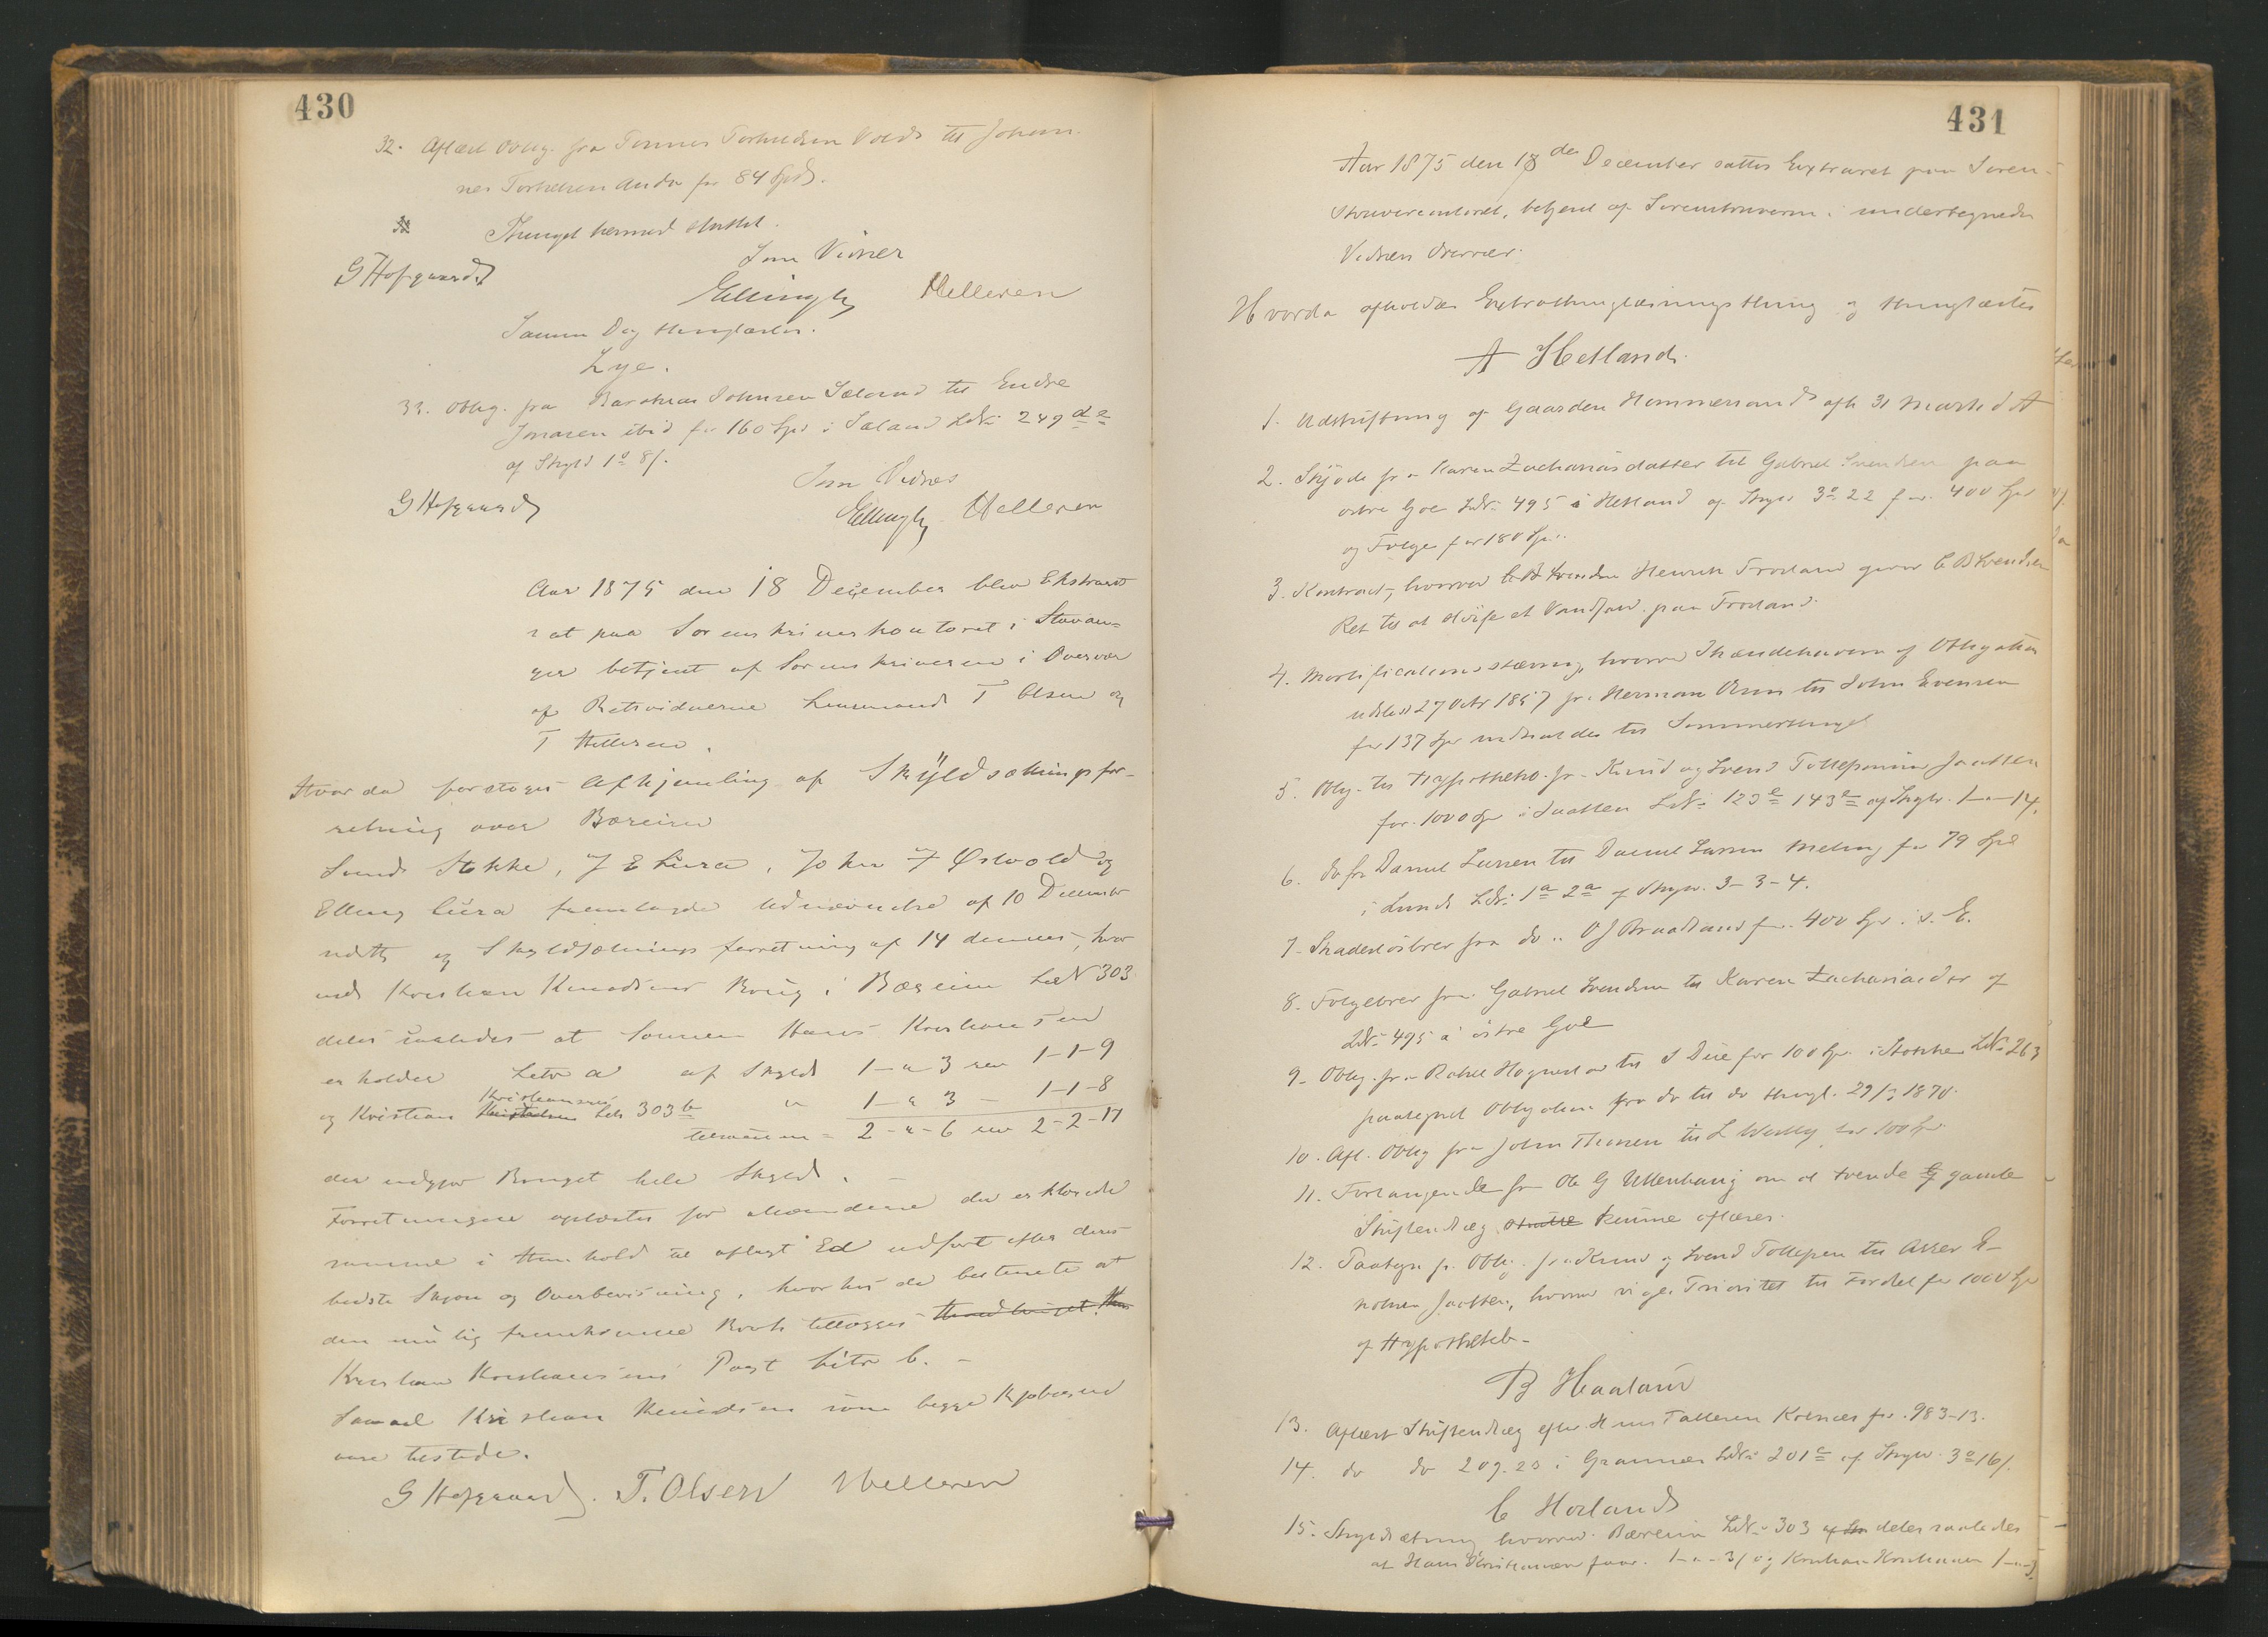 430
32. Aflæst Oblig. fra Tønnes Torkildsen Volds til Johan-
nes Torkelsen Anda for 84 Spd.
Thinget hermed sluttet.
Som Vidner
G Hofgaard
Ellingby Helleren
Samme Dag thinglæstes.
Lye.
33. Oblig. fra Johnsen Sæland til Endre
Jonasen ibid for 160 Spd i Sæland LNo 249
af Skyld 1 8/.
Som Vidner
G Hofgaard Ellingby Helleren
Aar 1875 den 18 December blev Ekstraret
sat paa Sorenskriverkontoret i Stavan-
ger betjent af Sorenskriveren i Overvær
af Retsvidnerne Lensmand T Olsen og
T Helleren.
Hvorda foretoges Afhjemling af Skyldsætningsfor-
retning over Bæreim
Svend Stokke, J E Lura, John F Østvold og
Elling Lura fremlagde Udnævnelse af 10 December
og Skyldsætningsforretning af 14 dennes, hvor-
ved Kristian Knudsens Brug i Bæreim LNo 303
deles saaledes at Sønnen Hans Kristiansen
erholder Litr a af Skyld 1-"-3 rev 1-1-9
og Kristian Kristiansen Litr 303 b " 1-"-3 - 1-1-8
tilsammen = 2-"-6 rev 2-2-17
der udgjør Brugets hele Skyld.
Forretningen oplæstes for Mændene der erklærede
samme i Henhold til aflagt Ed udført efter deres
bedste Skjøn og Overbevisning, hvorhos de bestemte at
den mulig fremkomne Brøk tillægges
Kristian Kristiansens Part Litr b. -
Saavel Kristian Knudsen som begge Kjøberne
vare tilstede.
G Hofgaard. T. Olsen Helleren
431
Aar 1875 den 18de December sattes Extraret paa Soren-
skrivercontoret, betjent af Sorenskriveren i undertegnede
Vidners Overvær.
Hvorda afholdes Extrathinglæsningsthing og thinglæstes
A Hetland.
1. Udskiftning af Gaarden Hommersand afh 31 Marts d A
2. Skjøde fra Karen Zachariasdatter til Gabriel Svendsen paa
østre Goe LNo 495 i Hetland af Skyld 3 22 for 400 Spd
og Folge for 180 Sp.
3. Kontract, hvorved Henrik Frøiland giver C B Svendsen
Ret til at sløife et Vandfald paa Frøiland.
4. Mortificationsstævning, hvorved Ihændehaveren af Obligation
udstedt 27 Octr 1857 fra Herman til John Evensen
for 137 Spd indkaldes til Sommerthinget
5. Oblig. til Hypothekb. fra Knud og Svend Tollefsønner Jaatten
for 1000 Spd i Jaatten LNo 123 143 af Skyld 1-"-14.
6. do fra Daniel Larsen til Daniel Larsen Meling for 79 Spd
i Lunde LNo 1a 2a af Skyld 3-3-4.
7. Skadesløsbrev fra do .. O J Braadland for 400 Spd i s. E.
8. Folgebrev fra Gabriel Svendsen til Karen Zachariasdtr af
LNo 495 i østre Goe
9. Oblig. fra Rakel til S Due for 100 Spd i Stokke LNo 263
paategnet Obligation fra do til do thingl. 29/3 1870.
10. Afl. Oblig fra John Thorsen til L for 100 Spd.
11. Forlangende fra Ole G Ullenhaug om at tvende gamle
Skiftendlæg kunne aflæses.
12. Paategn. fra Oblig. fra Knud og Svend Tollefsen til Asser E
Jaatten, hvorved viger Prioritet til Fordel for 1000 Spd
af Hypothekb-
B Haaland
13. Aflæst Skifteudlæg efter Tollersen Kolnæs for 983-13.
14. do do 209.23 i Grannes LNo 201 af Skyld 3 16/.
C Høiland
15. Skyldsætning hvorved Bæreim LNo 303 deles saaledes
at Hans Kristiansen faar 1-"-3/ og Kristian Kristiansen 1-"-3.